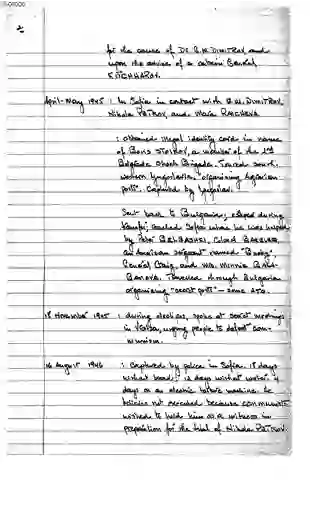 for the cause of Dr. G.M. DIMITROV, and
upon the advice of a certain General
April-May 1945 : In Sofia in contact with G.M. DIMITROV,
Nikola PETKOV, and Mara RACHEVA.
: obtained illegal identity card in name
of Boris STOIKOV, a member of the 2nd
Belgrade Shock Brigade. Toured south,
western Yugoslavia "organizing Agrarian
posts". Captured by Yugoslavs.
Sent back to Bulgaria; escaped during
transfer; reached Sofia where he was helped
by
an American sergeant named
General Craig, and Mrs. Minnie
Travelled through Bulgaria
organizing "secret posts" – some 250.
18 November 1945 : during elections, spoke at secret meetings
in Vratsa, urging people to defeat com-
munism.
16 August 1946 : Captured by police in Sofia. 18 days
without bread; 12 days without water; 4
days on an electric torture machine. He
believes not executed because communists
wished to hold him as a witness in
preparation for the trial of Nikola PETKOV.